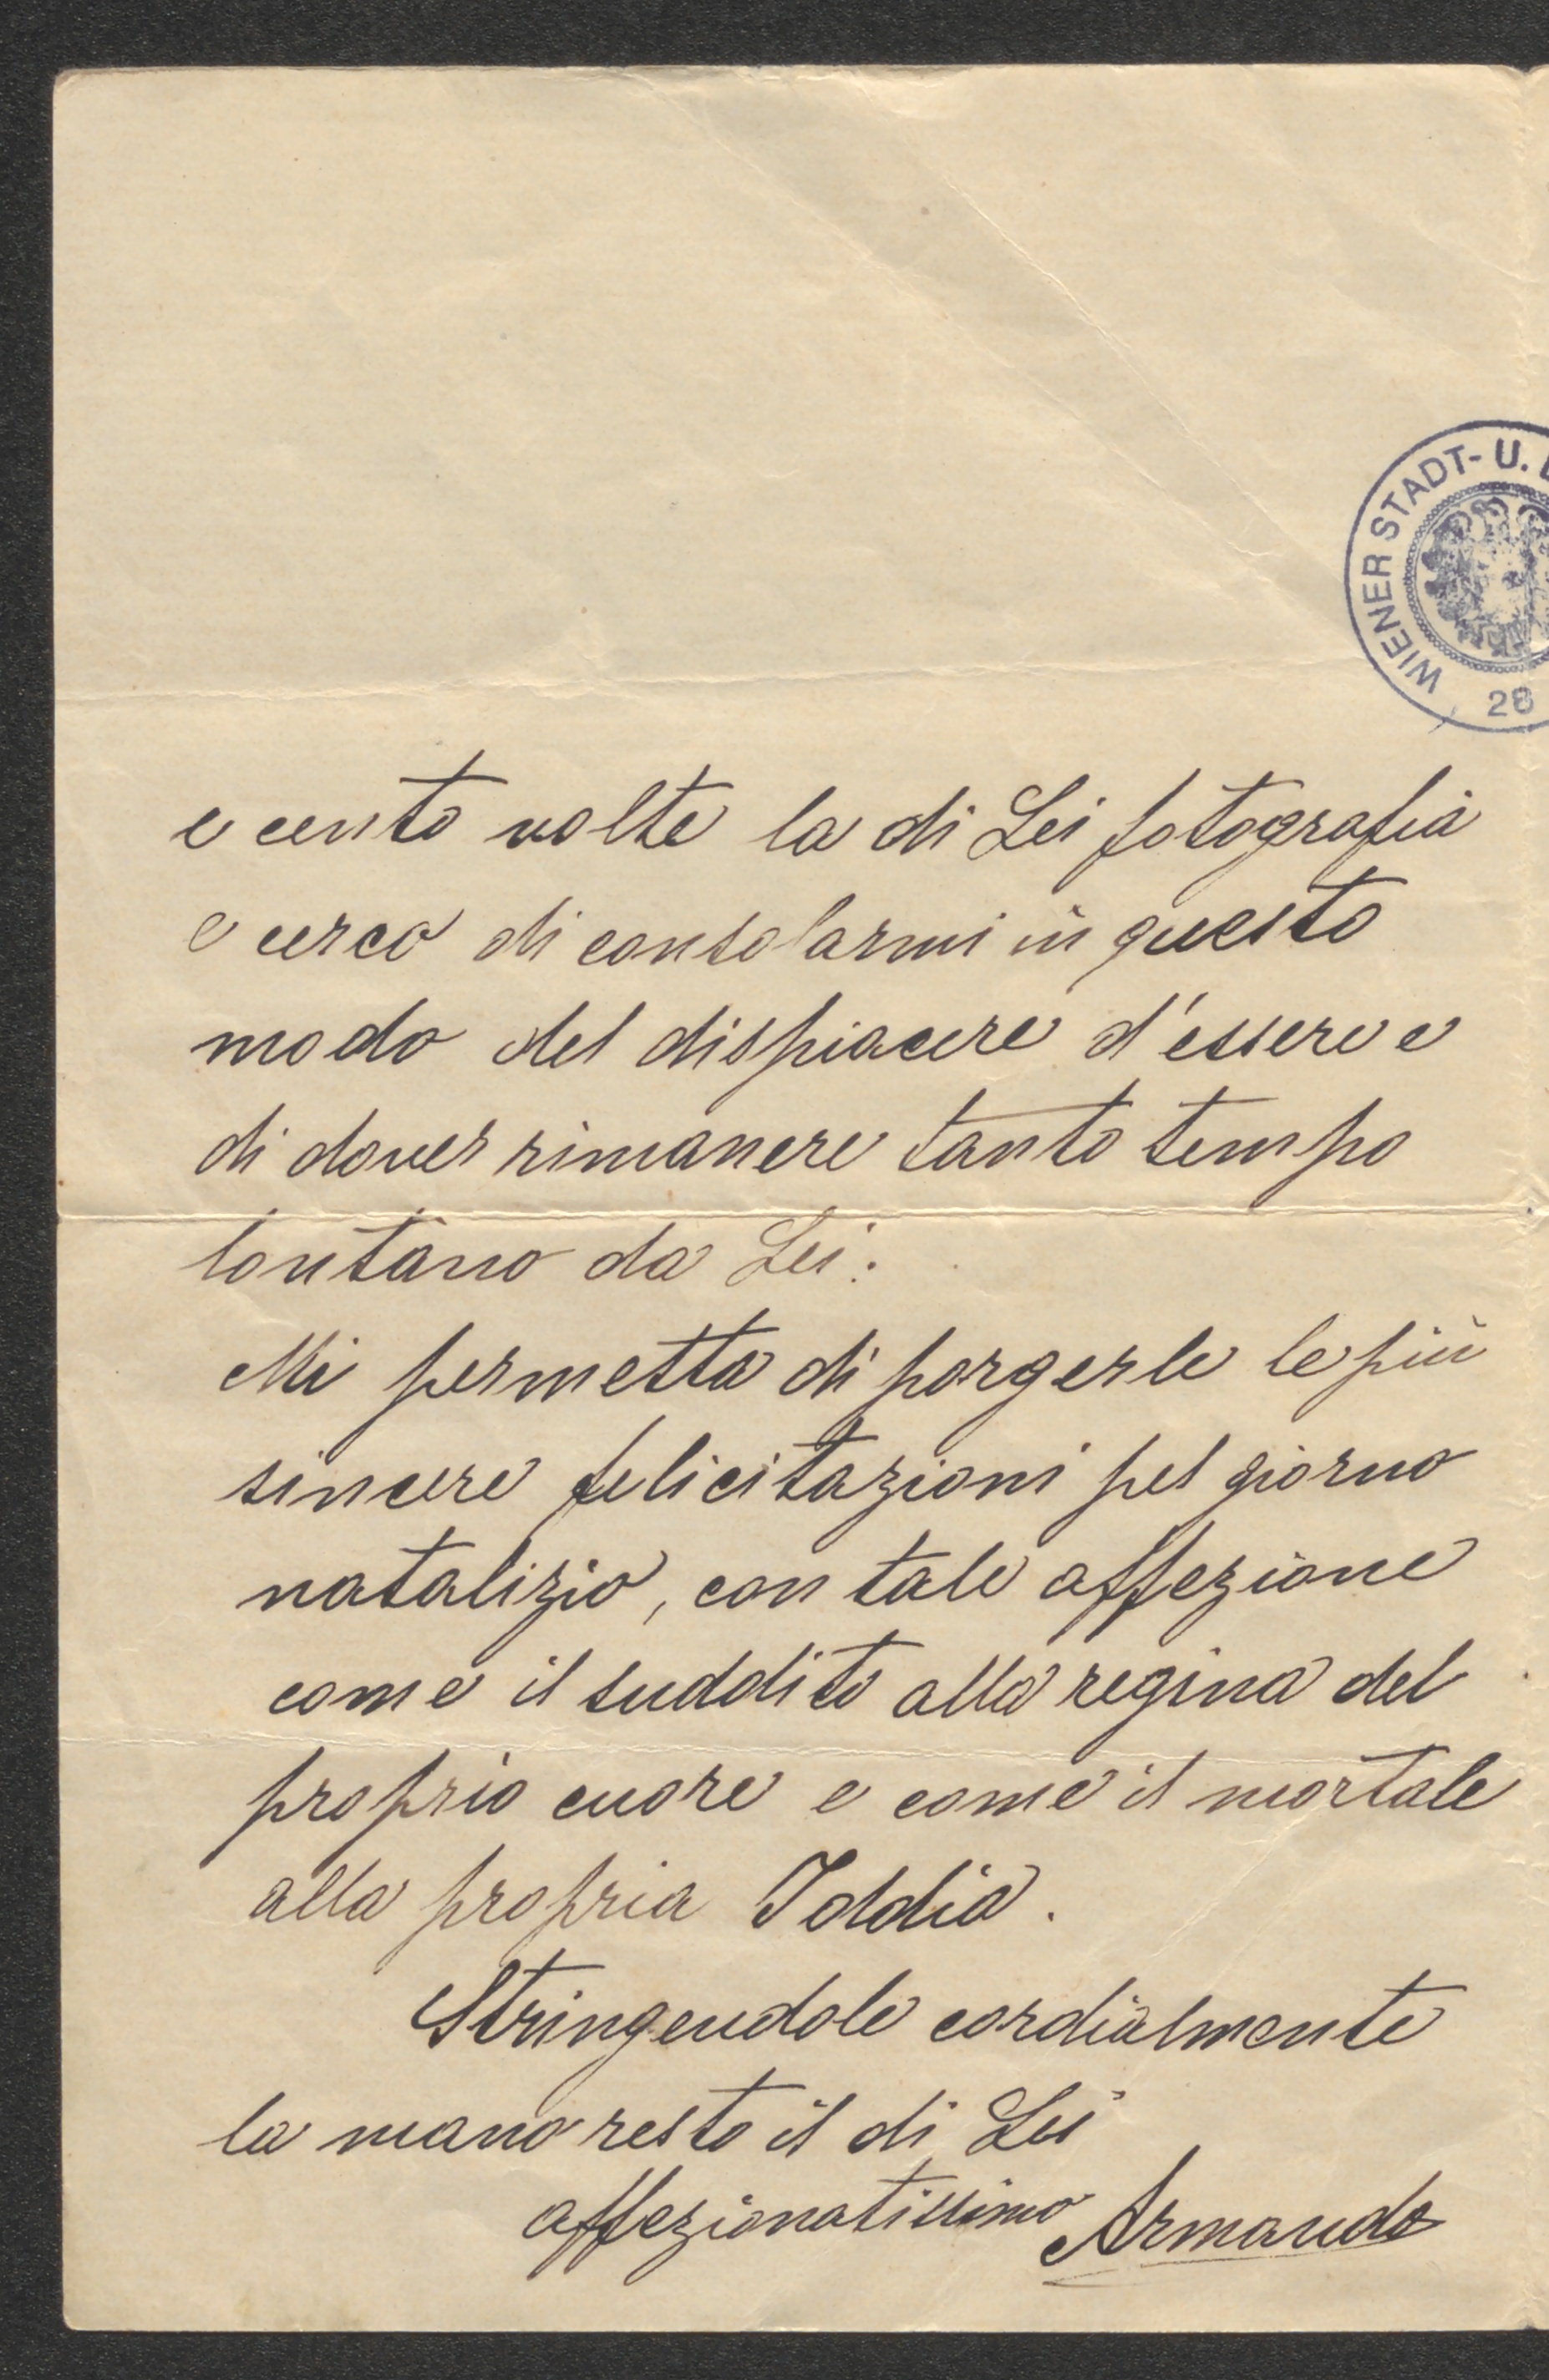 WIENER STADT- U. 
28
e cento volte la di Lei fotografia
e cerco di consolarmi in questo
modo del dispiacere d'essere e
di dover rimanere tanto tempo
lontano da Lei.
Mi permetta di porgerle le più
sincere felicitazioni pel giorno
natalizio, con tale affezione
come il suddito alla regina del
proprio cuore e come il mortale
alla propria Iddia.
Stringendole cordialmente
la mano resto il di Lei
affezionatissimo Armando